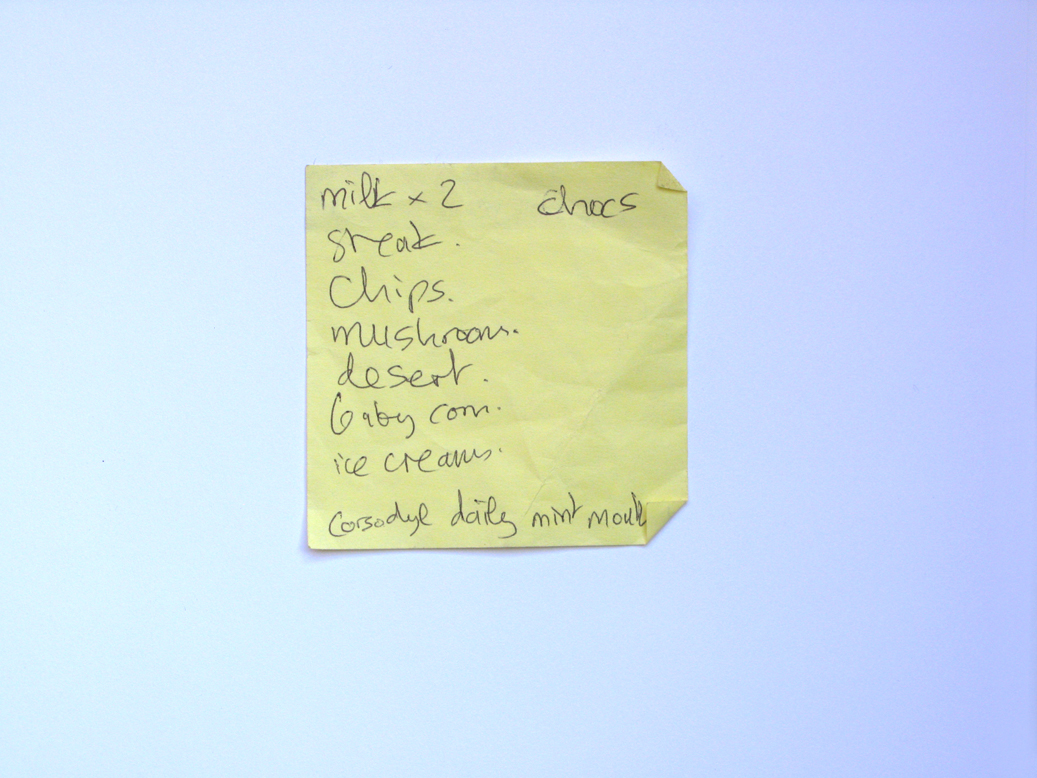 milk x 2 chocs
steak.
Chips.
mushroom.
desert.
baby corn.
ice creams.
Corsodyl daily mint mouth